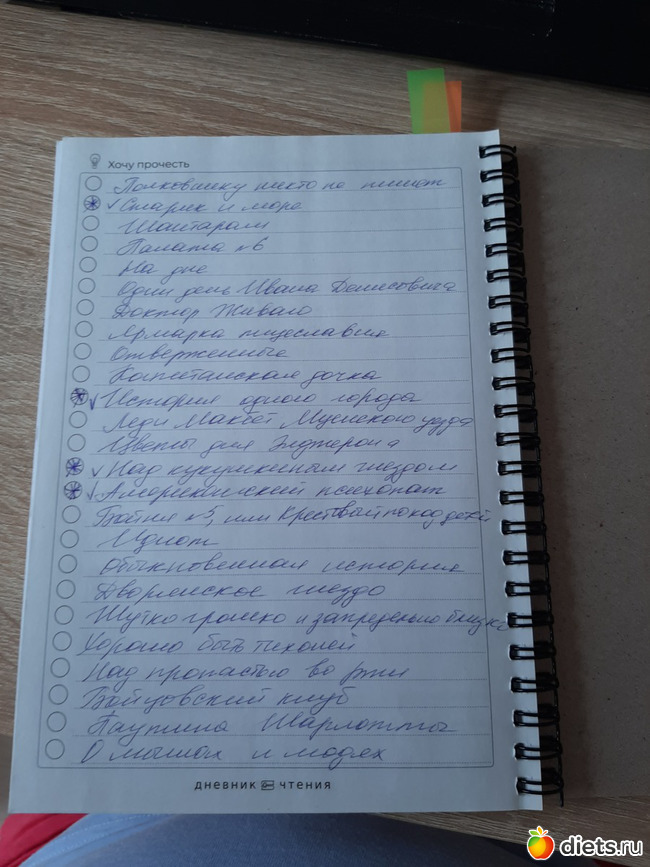 Хочу прочесть
Полковнику никто не пишет
✓ Старик и море
Шантарам
Палата №6
На дне
Один день Ивана Денисовича
Доктор Живаго
Ярмарка тщеславия
Отверженные
Капитанская дочка
✓ История одного города
Леди Макбет Мценского уезда
Цветы для Элджернона
✓ Над кукушкиным гнездом
✓ Американский психопат
Бойня №5, или Крестовый поход детей
Идиот
Обыкновенная история
Дворянское гнездо
Жутко громко и запредельно близко
Хорошо быть тихоней
Над пропастью во ржи
Бойцовский клуб
Паутина Шарлотты
О мышах и людях
дневник чтения
diets.ru